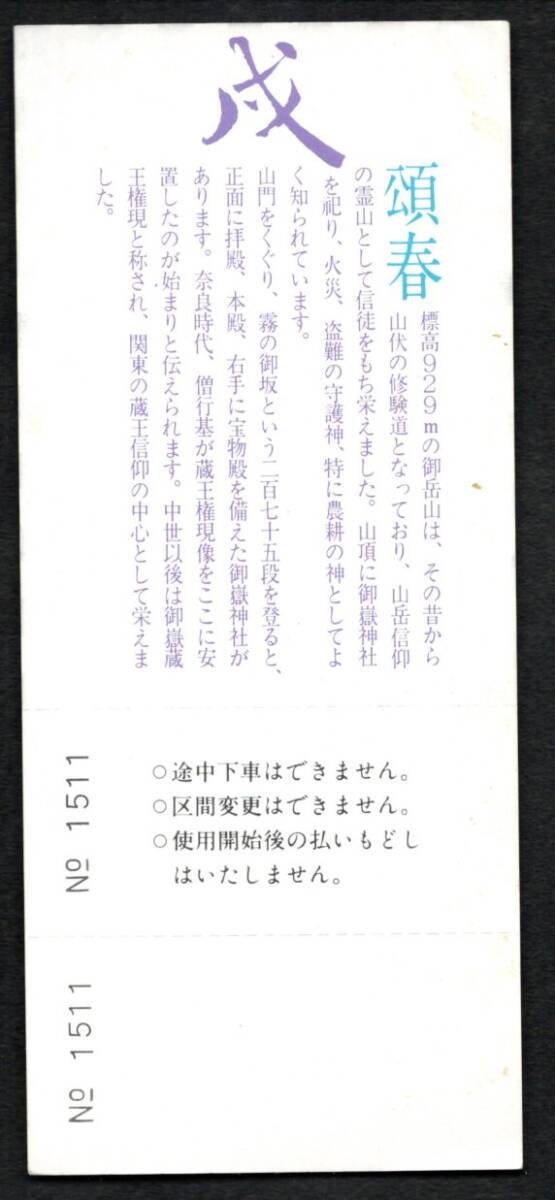 戌
頌春
標高929mの御岳山は、その昔から
山伏の修験道となっており、山岳信仰
の霊山として信徒をもち栄えました。山頂に御嶽神社
を祀り、火災、盗難の守護神、特に農耕の神としてよ
く知られています。
山門をくぐり、霧の御坂という二百七十五段を登ると、
正面に拝殿、本殿、右手に宝物殿を備えた御嶽神社が
あります。奈良時代、僧行基が蔵王権現像をここに安
置したのが始まりと伝えられます。中世以後は御嶽蔵
王権現と称され、関東の蔵王信仰の中心として栄えま
した。
○途中下車はできません。
○区間変更はできません。
○使用開始後の払いもどし
はいたしません。
№ 1511
№ 1511